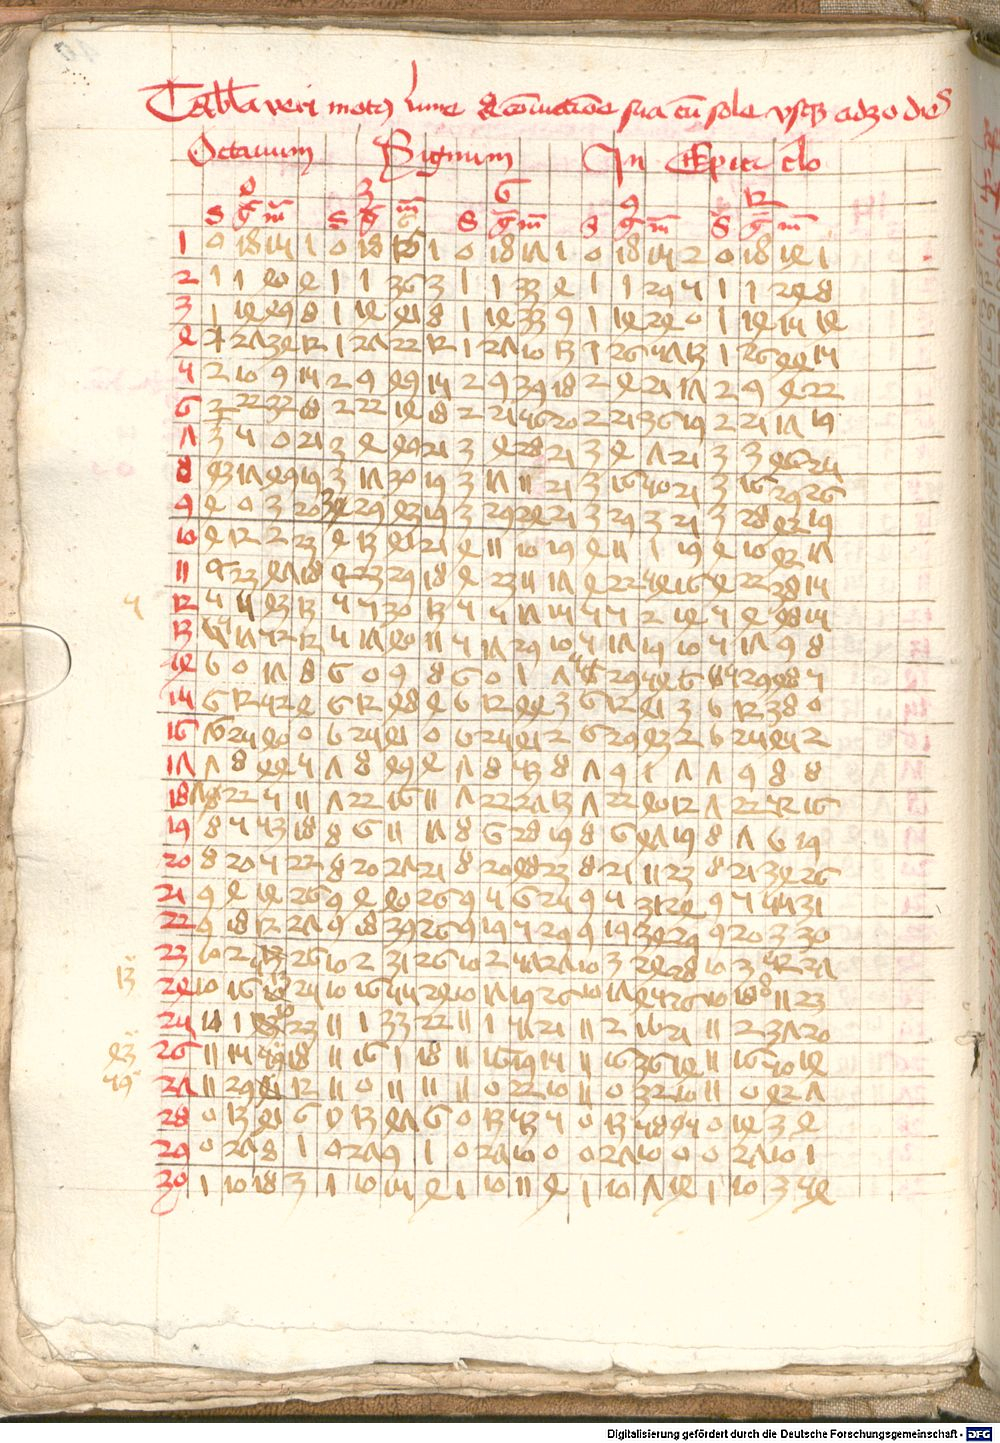 Tabula veri motus lune a coniunctione sua cum sole vsque ad 30 dies
Octauum Signum In Epiciclo
0 3 6 9 12
S g m S g m S g m S g m S g m
1 0 18 15 1 0 18 16 1 0 18 17 1 0 18 15 2 0 18 14 1
2 1 1 40 4 1 1 36 3 1 1 33 4 1 1 29 5 1 1 24 8
3 1 14 49 8 1 14 41 8 1 14 33 9 1 14 24 0 1 14 15 14
4 1 27 34 12 1 27 22 12 1 27 10 13 1 26 57 13 1 26 44 15
5 2 10 9 15 2 9 49 15 2 9 39 18 2 4 21 17 2 9 4 22
6 2 22 32 18 2 22 14 18 2 21 56 20 2 21 36 19 2 21 17 19
7 3 5 0 21 3 4 49 21 3 4 28 21 3 4 7 21 3 3 46 25
8 3 17 49 19 3 17 30 19 3 17 11 21 3 16 50 21 3 16 29 26
9 4 0 3 20 3 29 43 19 3 29 24 21 3 29 3 21 3 28 42 19
10 4 12 2 23 4 13 41 21 4 11 10 19 4 11 1 19 4 10 42 17
11 4 23 47 18 4 23 29 18 4 23 11 17 4 22 54 16 4 22 38 15
5 12 5 5 43 13 5 5 30 13 5 5 17 15 5 5 2 14 5 4 48 15
13 5 17 52 12 5 17 40 11 5 17 29 10 5 17 19 10 5 17 9 8
14 6 0 17 8 6 0 9 8 6 0 1 7 5 29 54 6 5 29 48 5
15 6 12 52 4 6 12 48 4 6 12 44 3 6 12 41 3 6 12 38 0
16 6 25 40 0 6 25 41 0 6 25 41 2 6 29 43 2 6 25 45 2
17 7 8 44 5 7 8 49 4 7 8 53 8 7 9 1 7 7 9 8 8
18 7 22 5 11 7 22 16 11 7 22 27 13 7 22 40 12 7 22 52 16
19 8 5 53 18 8 6 11 17 8 6 28 19 8 6 47 19 8 7 6 19
20 8 20 5 22 8 20 27 21 8 20 48 23 8 21 11 23 8 21 34 26
21 9 4 14 26 9 4 40 26 9 5 6 25 9 5 31 24 9 5 55 31
22 9 18 12 27 9 18 39 26 9 19 5 29 9 19 34 29 9 20 3 30
23 10 2 26 10 2 31 26 10 2 57 27 10 3 24 28 10 3 52 27
13 24 10 16 25 10 16 55 24 10 17 19 26 10 17 45 26 10 18 11 23
25 11 1 23 11 1 33 22 11 1 55 21 11 2 16 21 11 2 37 20
43 26 11 15 49 18 11 16 1 18 11 16 19 15 11 16 36 14 11 16 50 14
59 27 11 29 12 11 0 11 11 11 0 22 10 11 0 32 10 11 0 42 7
28 0 13 41 6 0 13 47 6 0 13 53 5 0 13 58 5 0 14 3 4
29 0 27 8 1 0 27 9 1 0 27 10 0 0 27 10 0 0 27 10 1
30 1 10 18 3 1 10 15 4 1 10 11 4 1 10 7 14 1 10 3 54
Digitalisierung gefördert durch die Deutsche Forschungsgemeinschaft - DFG